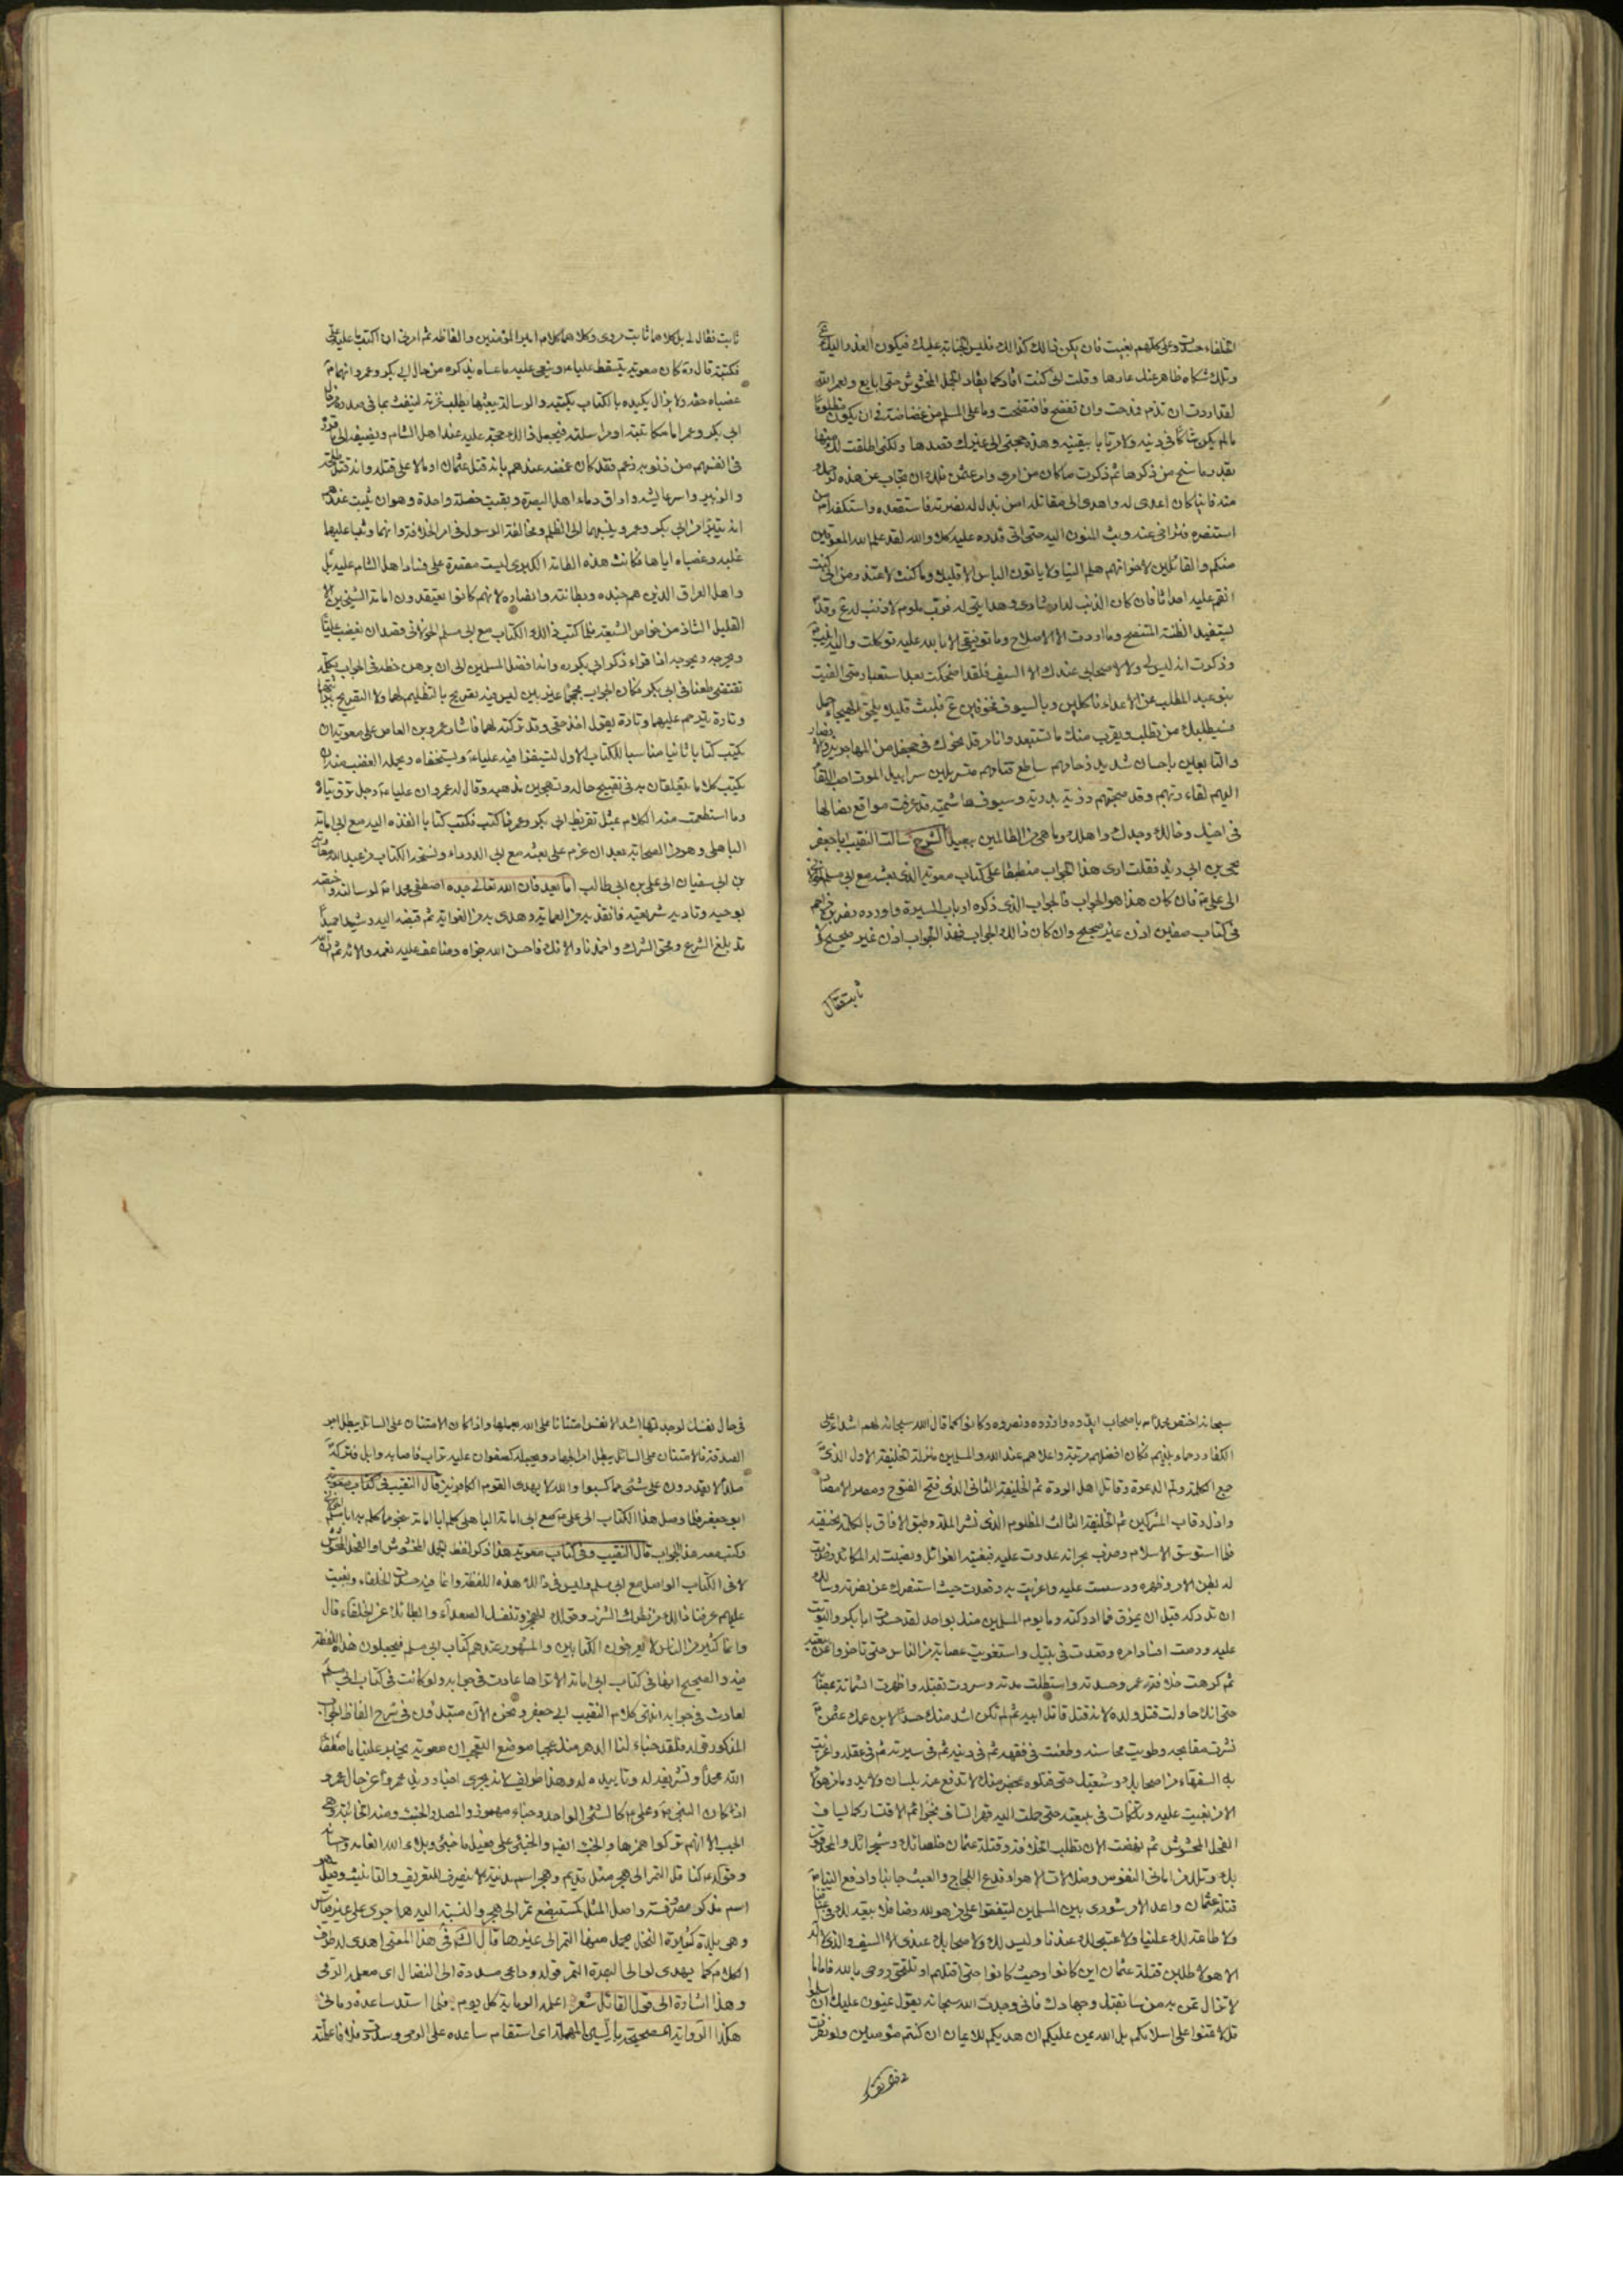 الخلفاء حسدت وعلى كلهم بغيت فان يكن ذلك كذلك فليس الجناية عليك فيكون العذر اليك ع
وتلك شكاة ظاهر عنك عارها وقلت انى كنت اقاد كما يقاد الجمل المخشوش حتى ابايع ولعمر الله
لقد اردت ان تذم فمدحت وان تفضح فافتضحت وما على المسلم من غضاضة فى ان يكون مظلوما
ما لم يكن شاكا فى دينه ولا مرتابا بيقينه وهذه حجتى الى غيرك قصدها ولكنى اطلقت لك منها
بقدر ما سنح من ذكرها ثم ذكرت ما كان من امرى وامر عثمن فلك ان تجاب عن هذه لرحمك
منه فاينا كان اعدى له واهدى الى مقاتله امن بذل له نصرته فاستقعده واستكفه ام من
استنصره فتراخى عنه وبث المنون اليه حتى اتى قدره عليه كلا والله لقد علم الله المعوقين
منكم والقائلين لاخوانهم هلم الينا ولا ياتون الباس الا قليلا وما كنت لاعتذر من انى كنت
انقم عليه احداثا فان كان الذنب اليه ارشادى وهدايتى له فرب ملوم لا ذنب له ع وقد
يستفيد الظنة المتنصح وما اردت الا الاصلاح وما توفيقى الا بالله عليه توكلت واليه انيب
وذكرت انه ليس لى ولاصحابى عندك الا السيف فلقد اضحكت بعد استعبار متى الفيت
بنو عبد المطلب عن الاعداء ناكلين وبالسيوف مخوفين ع فلبث قليلا يلحق الهيجاء حمل
فسيطلبك من تطلب ويقرب منك ما تستبعد وانا مرقل نحوك فى جحفل من المهاجرين والانصار
والتابعين باحسان شديد زحامهم ساطع قتامهم متسربلين سرابيل الموت احب اللقاء
اليهم لقاء ربهم وقد صحبتهم ذرية بدرية وسيوف هاشمية قد عرفت مواقع نصالها
فى اخيك وخالك وجدك واهلك وما هى من الظالمين ببعيد الشرح سالت النقيب ابا جعفر
يحيى بن ابى زيد فقلت ارى هذا الجواب منطبقا على كتاب معوية الذى بعثه مع ابى مسلم الخولانى
الى على ع فان كان هذا هو الجواب فالجواب الذى ذكره ارباب السيرة واورده نصر بن مزاحم
فى كتاب صفين اذن غير صحيح وان كان ذلك الجواب فهذا الجواب اذن غير صحيح ولا
ثابت فقال
ثابت فقال لى بل كلاهما ثابت مروى وكلاهما كلام امير المؤمنين والفاظه ثم امرنى ان اكتب ما عليه على
فكتبته قال ره كان معوية يتسقط عليا ع وينعى عليه ما عساه يذكره من حال ابى بكر وعمر وانهما
غصباه حقه ولا يزال يكيده بالكتاب يكتبه والرسالة يبعثها يطلب غرته لينفث بما فى صدره من
ابى بكر وعمر اما مكاتبة او مراسلة فيجعل ذلك حجة عليه عند اهل الشام ويضيفه الى ما قرره
فى انفسهم من ذنوبه زعم فقد كان غمصه عندهم بانه قتل عثمان او مالا على قتله وانه قتل طلحة
والزبير واسر عايشه واراق دماء اهل البصرة وبقيت خصلة واحدة وهو ان يثبت عندهم
انه يتبرا من ابى بكر وعمر وينسبهما الى الظلم ومخالفة الرسول فى امر الخلافة وانهما وثبا عليها
غلبة وغصباه اياها فكانت هذه الطامة الكبرى ليست مقتصرة على فساد اهل الشام عليه بل
واهل العراق الذين هم جنده وبطانته وانصاره لانهم كانوا يعتقدون امامة الشيخين الا
القليل الشاذ من خواص الشيعة فلما كتب ذلك الكتاب مع ابى مسلم الخولانى قصد ان يغضب عليا
ويحرجه ويحوجه اذا قراء ذكر ابى بكر ره وانه افضل المسلمين الى ان يرهن خطه فى الجواب بكلمة
تقتضى طعنا فى ابى بكر فكان الجواب مجمجا غير بين ليس فيه تصريح بالتظليم لهما ولا التصريح ببراءتهما
وتارة يترحم عليهما وتارة يقول اخذ حقى وقد تركته لهما فاشار عمرو بن العاص على معوية ان
يكتب كتابا ثانيا مناسبا للكتاب الاول ليستفزا فيه عليا ع ويستخفاه ويحمله الغضب منه ان
يكتب كلاما يتعلقان به فى تقبيح حاله وتهجين مذهبه وقال له عمرو ان عليا ع رجل نزق تياه
وما استطعمت منه الكلام بمثل تقريظ ابى بكر وعمر فاكتب فكتب كتابا انفذه اليه مع ابى امامة
الباهلى وهو من الصحابة بعد ان عزم على بعثه مع ابى الدرداء ونسخة الكتاب من عبد الله معوية
بن ابى سفيان الى على بن ابى طالب اما بعد فان الله تعالى جده اصطفى محمدا ع لرسالته واختصه
بوحيه وتادية شريعته فانقذ به من العماية وهدى به من الغواية ثم قبضه اليه رشيدا حميدا
قد بلغ الشرع ومحق الشرك واخمد نار الافك فاحسن الله جزاه وضاعف عليه نعمه والائه ثم ان الله
سبحانه اختص محمدا ع باصحاب ايدوه وازروه ونصروه وكانوا كما قال الله سبحانه لهم اشداء على
الكفار رحماء بينهم فكان افضلهم مرتبة واعلاهم عند الله والمسلمين منزلة الخليفة الاول الذى
جمع الكلمة ولم الدعوة وقاتل اهل الردة ثم الخليفة الثانى الذى فتح الفتوح ومصر الامصار
واذل رقاب المشركين ثم الخليفة الثالث المظلوم الذى نشر الملة وطبق الافاق بالكلمة الحنيفية
فلما استوسق الاسلام وضرب بجرانه عدوت عليه فبغيته الغوائل ونصبت له المكائد وضربت
له بطن الامر وظهره ودسست عليه واغريت به وقعدت حيث استنصرك عن نصرته وسالك
ان تدركه قبل ان يمزق فما ادركته وما يوم المسلمين منك بواحد لقد حسدت ابا بكر والتويت
عليه ورمت افساد امره وقعدت فى بيتك واستغويت عصابة من الناس حتى تاخروا عن بيعته
ثم كرهت خلافة عمر وحسدته واستطلت مدته وسررت بقتله واظهرت الشماتة بمصابه
حتى انك حاولت قتل ولده لانه قتل قاتل ابيه ثم لم تكن اشد منك حسدا لابن عمك عثمن
نشرت مقابحه وطويت محاسنه وطعنت فى فقهه ثم فى دينه ثم فى سيرته ثم فى عقله واغريت
به السفهاء من اصحابك وشيعتك حتى قتلوه بمحضر منك لا تدفع عنه بلسان ولا يد وما من هولاء
الا من بغيت عليه وتلكات فى بيعته حتى حملت اليه قهرا تساق بخزائم الاقتسار كما يساق
الفحل المخشوش ثم نهضت الان تطلب الخلافة وقتلة عثمان خلصائك وسجرائك والمحدقون
بك وتلك من امانى النفوس وضلالات الاهواء فدع اللجاج والعبث جانبا وادفع الينا
قتلة عثمان واعد الامر شورى بين المسلمين ليتفقوا على من هو لله رضا فلا بيعة لك فى اعناقنا
ولا طاعة لك علينا ولا عتبى لك عندنا وليس لك ولاصحابك عندى الا السيف والذى لا اله
الا هو لاطلبن قتلة عثمان اين كانوا وحيث كانوا حتى اقتلهم او تلتحق روحى بالله فاما ما
لا تزال تمن به من سابقتك وجهادك فانى وجدت الله سبحانه يقول يمنون عليك ان اسلموا
قل لا تمنوا على اسلامكم بل الله يمن عليكم ان هديكم للايمان ان كنتم مؤمنين ولو نظرت
فى حال نفسك لوجدتها اشد الانفس امتنانا على الله بعملها واذا كان الامتنان على السائل يبطل اجر
الصدقة فالامتنان على السائل يبطل اجر الجهاد ويجعله كصفوان عليه تراب فاصابه وابل فتركه
صلدا لا يقدرون على شئ مما كسبوا والله لا يهدى القوم الكافرين قال النقيب فى كتاب معوية
ابو جعفر فلما وصل هذا الكتاب الى على ع مع ابى امامة الباهلى كلم ابا امامة بنحو ما كلم به ابا مسلم الخولانى
وكتب معه هذا الجواب قال النقيب وفى كتاب معوية هذا ذكر لفظ الجمل المخشوش او الفحل المخشوش
لا فى الكتاب الواصل مع ابى مسلم وليس فى ذلك هذه اللفظة وانما فيه حسدت الخلفاء وبغيت
عليهم عرفنا ذلك من نظرك الشزر وقولك الهجر وتنفسك الصعداء وابطائك عن الخلفاء قال
وانما كثير من الناس لا يعرفون الكتابين والمشهور عندهم كتاب ابى مسلم فيجعلون هذه اللفظة
فيه والصحيح انها فى كتاب ابى امامة الا تراها عادت فى جوابه ولو كانت فى كتاب ابى مسلم
لعادت فى جوابه انتهى كلام النقيب ابى جعفر ونحن الان مبتدؤن فى شرح الفاظ الجواب
المذكور قوله فلقد خباء لنا الدهر منك عجبا موضع التعجب ان معوية يخبر عليا ع باصطفاء
الله محمدا وتشريفه له وتاييده له وهذا ظريف لانه يجرى اخبار زيد عمروا عن حال عمرو
اذ كان النبى ص وعلى ع كالشئ الواحد وخباء مهموز والمصدر الخبء ومنه الخابية وهى
الحب الا انهم تركوا همزها والخبء ايضا والخبئ على فعيل ما خبئ وبلاء الله انعامه وحسانه
وقوله ع كناقل التمر الى هجر مثل قديم وهجر اسم مدينة لا ينصرف للتعريف والتانيث وقيل هو
اسم مذكر مصروف واصل المثل كمستبضع تمر الى هجر والنسبة اليه هاجرى على غير قياس
وهى بلدة كثيرة النخل يحمل منها التمر الى غيرها قال الش فى هذا المعنى اهدى له طرف
الكلام كما يهدى لوالى البصرة التمر قوله وداعى مسدده الى النضال اى معلمه الرمى
وهذا اشارة الى قول القائل شعر اعلمه الرماية كل يوم فلما استد ساعده رمانى
هكذا الرواية الصحيحة بالسين المهملة اى استقام ساعده على الرمى وسددت فلانا علمته